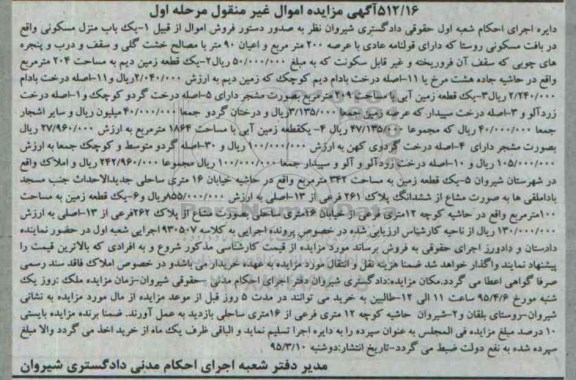 ۵۱۲/۱۶آگهی مزایده اموال غیر منقول مرحله اول
دایره اجرای احکام شعبه اول حقوقی دادگستری شیروان نظر به صدور دستور فروش اموال از قبیل ۱-یک باب منزل مسکونی واقع
در بافت مسکونی روستا که دارای قولنامه عادی با عرصه ۲۰۰ متر مربع و اعیان ۹۰ متر با مصالح خشت گلی و سقف و درب و پنجره
های چوبی که سقف آن فروریخته و غیر قابل سکونت که به مبلغ ۵۰/۰۰۰/۰۰۰ ریال۲-یک قطعه زمین دیم به مساحت ۲۰۴ مترمربع
واقع در حاشیه جاده هشت مرخ با ۱۱-اصله درخت بادام دیم کوچک که زمین دیم به ارزش ۲/۰۴۰/۰۰۰ریال و۱۱-اصله درخت بادام
۲/۲۴۰/۰۰۰ ریال۳-یک قطعه زمین آبی با مساحت ۲۰۹ مترمربع بصورت مشجر دارای ۵-اصله درخت گردو کوچک و۱-اصله درخت
زردآلو و ۳-اصله درخت سپیدار که عرصه زمین جمعا ۳/۱۳۵/۰۰۰ریال و درختان گردو جمعا ۴۰/۰۰۰/۰۰۰ میلیون ریال و سایر اشجار
جمعا ۴/۰۰۰/۰۰۰ ریال که مجموعا ۴۷/۱۳۵/۰۰۰ ریال ۴- یکقطعه زمین آبی با مساحت ۱۸۶۴ مترمربع به ارزش ۲۷/۹۶۰/۰۰۰ ریال
بصورت مشجر دارای ۴-اصله درخت گردوی کهن به ارزش ۱۰۰/۰۰۰/۰۰۰ ریال و ۳۰-اصله گردو متوسط و کوچک جمعا به ارزش
۱۰۵/۰۰۰/۰۰۰ ریال و ۱۰-اصله درخت زردآلو و آلو و سپیدار جمعا ۱۰/۰۰۰/۰۰۰ ریال مجموعا ۲۴۲/۹۶۰/۰۰۰ ریال و املاک واقع
در شهرستان شیروان ۵-یک قطعه زمین به مساحت ۳۴۲ مترمربع واقع در حاشیه خیابان ۱۶ متری ساحلی جدیدالاحداث جنب مسجد
باداملقی ها به صورت مشاع از ششدانگ پلاک ۲۶۱ فرعی از ۱۳-اصلی به ارزش ۸۵۵/۰۰۰/۰۰۰ریال و۶-یک قطعه زمین به مساحت
۱۰۰مترمربع واقع در حاشیه کوچه ۱۲متری فرعی از خیابان ۱۶متری ساحلی بصورت مشاع از پلاک ۲۶۲فرعی از ۱۳-اصلی به ارزش
۱۳۰/۰۰۰/۰۰۰ ریال از ناحیه کارشناس ارزیابی شده در خصوص پرونده اجرایی به کلاسه ۹۳۰۵۰۷ اجرایی شعبه اول در حضور نماینده
دادستان و دادورز اجرای حقوقی به فروش برساند مورد مزایده از قیمت کارشناسی مذکور شروع و به افرادی که بالاترین قیمت را
پیشنهاد نمایند واگذار خواهد شد ضمنا هزینه نقل و انتقال مورد مزایده به عهده خریدار می باشد و در خصوص املاک فاقد سند رسمی
صرفا گواهی اعطا می گردد.مکان مزایده:دادگستری شیروان دفتر اجرای احکام مدنی -حقوقی شیروان-زمان مزایده ملک :روز یک
شنبه مورخ ۹۵/۴/۶ ساعت ۱۱ الی ۱۲-طالبین به خرید می توانند در مدت ۵ روز قبل از موعد مزایده از مال مورد مزایده به نشانی
شیروان-روستای بلقان و۲-شیروان حاشیه کوچه ۱۲ متری فرعی از ۱۶متری ساحلی بازدید به عمل آورند. ضمنا برنده مزایده بایستی
۱۰ درصد مبلغ مزایده فی المجلس به عنوان سپرده را به دایره اجرا تسلیم نماید و الباقی ظرف یک ماه از خرید اخذ می گردد والا مبلغ
سپرده شده به نفع دولت ضبط می گردد-تاریخ انتشار:دوشنبه ۹۵/۳/۱۰
مدیر دفتر شعبه اجرای احکام مدنی دادگستری شیروان